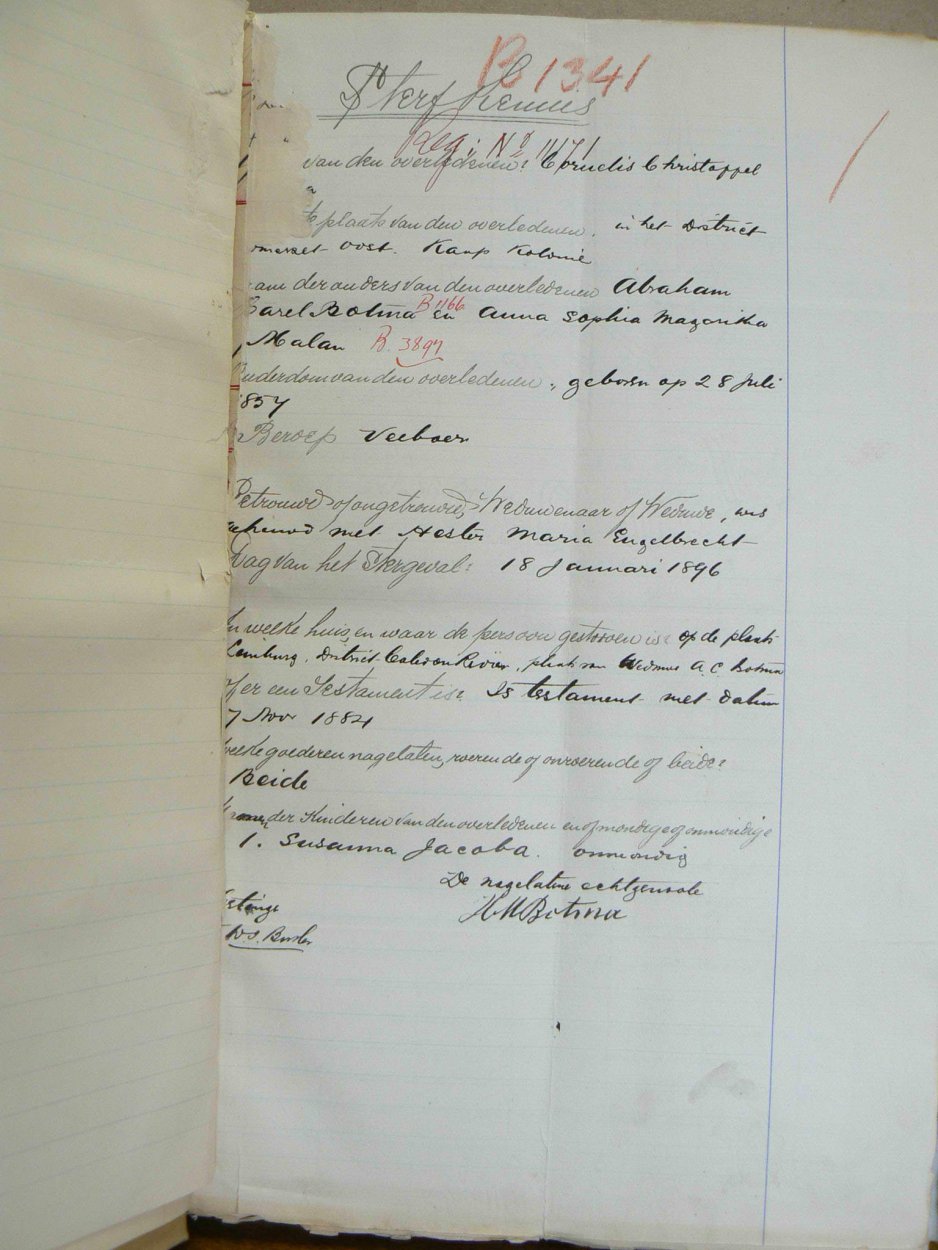 B 1341
Sterf Kennis
Reg: No 11171
van den overledenen: Cornelis Christoffel
plaats van den overledenen. in het District
omerset oost. Kaap Kolonie
der ouders van den overledenen Abraham
Carel Botma B 1166 en Anna Sophia Magarita
Malan B. 3897
Ouderdom van den overledenen, geboren op 28 Juli
1857
Beroep Veeboer
Getrouwd of ongetrouwd, Weduwenaar of Weduwe, was
getrouwd met Hester Maria Engelbrecht
Dag van het Sterfgeval: 18 Januari 1896
In welke huis, en waar de persoon gestorven is: op de plaats
District Caledon Rivier, plaats van Weduwe A. C. Botma
Of er een Testament is: Is testament met datum
7 Nov 1884
Welke goederen nagelaten, roerende of onroerende of beide:
Beide
der Kinderen van den overledenen en of mondige of onmondige
1. Susanna Jacoba. onmondig
De nagelatene echtgenoote
H M Botma